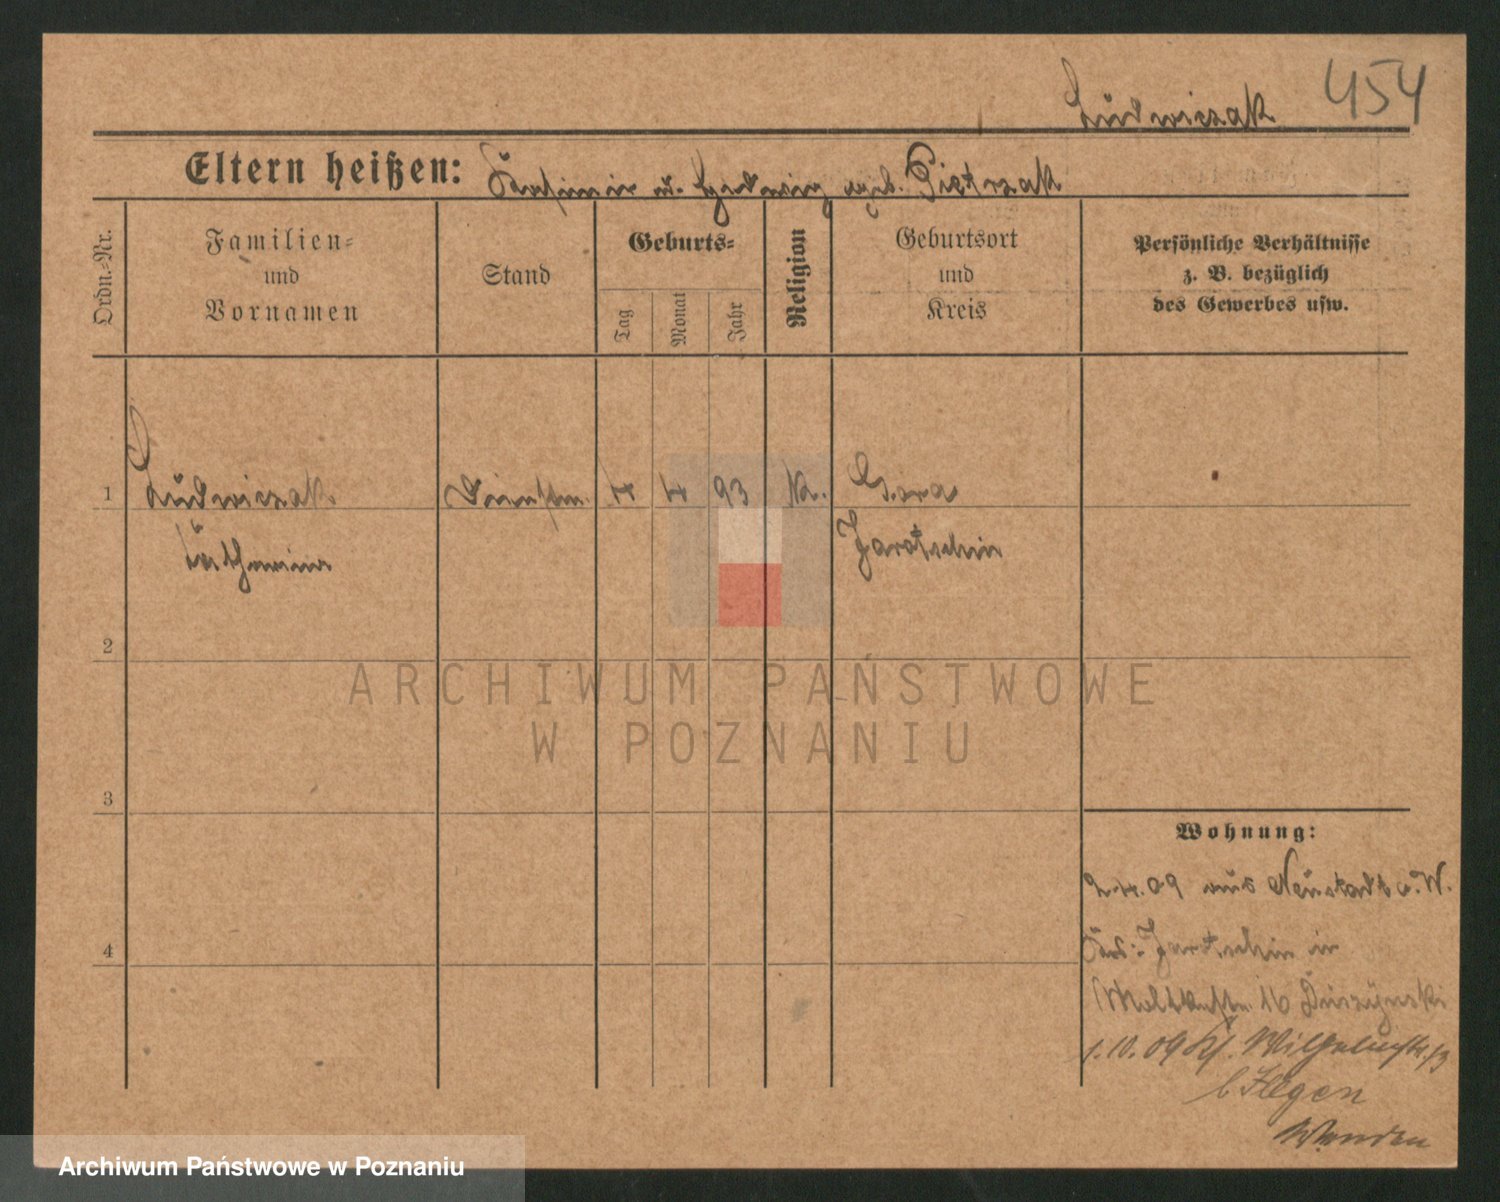 Ludwiczak 454
Eltern heißen: Kasimir u. Hedwig geb. Pietrzak
Ordn.-Nr.
Familien-
und
Vornamen
Stand
Geburts-
Tag
Monat
Jahr
Religion
Geburtsort
und
Kreis
Persönliche Verhältnisse
z. B. bezüglich
des Gewerbes usw.
1 Ludwiczak Dienstm. 4 4 93 K. Gora
Katharina Jarotschin
2
3
4
Wohnung:
2.4.09 aus Neustadt a.W.
Krs: Jarotschin in
16 Duszynski
1.10.09 Wilhelmstr.
b Illgen
Wenden
ARCHIWUM PAŃSTWOWE
W POZNANIU
Archiwum Państwowe w Poznaniu